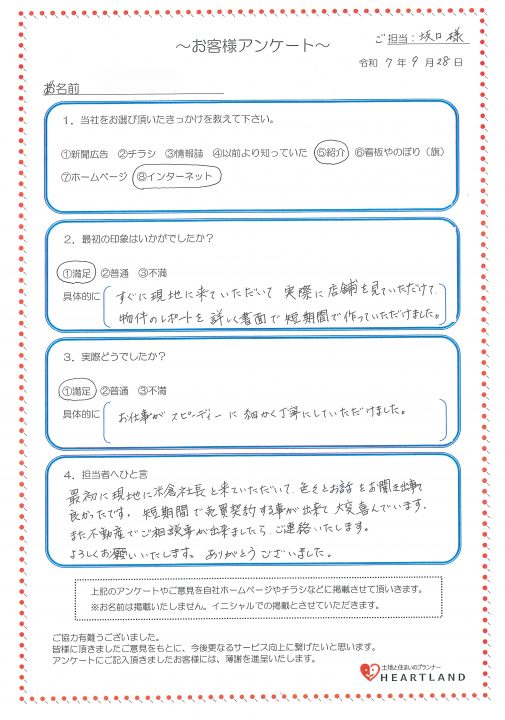 ～お客様アンケート～
ご担当：坂口様
令和 7年 9月 28日
お名前
1．当社をお選び頂いたきっかけを教えて下さい。
①新聞広告 ②チラシ ③情報誌 ④以前より知っていた ⑤紹介 ⑥看板やのぼり（旗）
⑦ホームページ ⑧インターネット
2．最初の印象はいかがでしたか？
①満足 ②普通 ③不満
具体的に
すぐに現地に来ていただいて 実際に店舗を見ていただけて、
物件のレポートを詳しく書面で短期間で作っていただけました。
3．実際どうでしたか？
①満足 ②普通 ③不満
具体的に
お仕事がスピーディーに細かく丁寧にしていただけました。
4．担当者へひと言
最初に現地に米倉社長と来ていただいて、色々とお話をお聞き出来て
良かったです。短期間で売買契約する事が出来て大変喜んでいます。
また不動産でご相談事が出来ましたら、ご連絡いたします。
よろしくお願いいたします。ありがとうございました。
上記のアンケートやご意見を自社ホームページやチラシなどに掲載させて頂いきます。
※お名前は掲載いたしません。イニシャルでの掲載とさせていただきます。
ご協力有難うございました。
皆様に頂きましたご意見をもとに、今後更なるサービス向上に繋げたいと思います。
アンケートにご記入頂きましたお客様には、薄謝を進呈いたします。
土地と住まいのプランナー
HEARTLAND